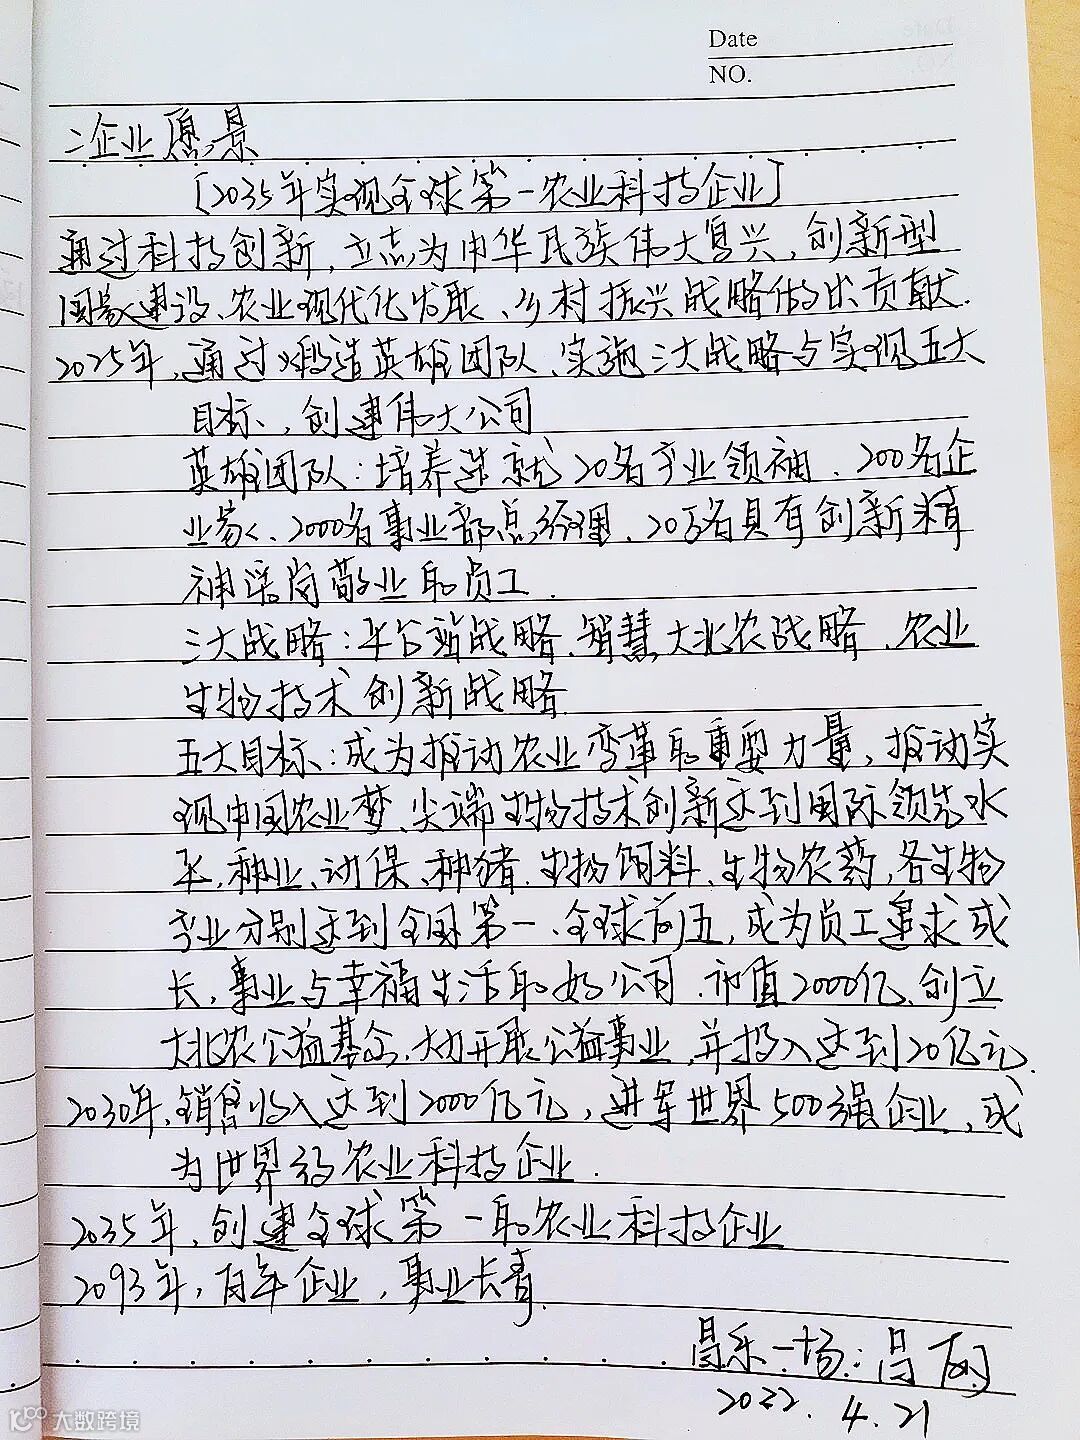 Date
NO.
二企业愿景
[2035年实现全球第一农业科技企业]
通过科技创新,立志为中华民族伟大复兴,创新型
国家建设、农业现代化发展、乡村振兴战略做出贡献.
2025年,通过锻造英雄团队、实施三大战略与实现五大
目标,创建伟大公司
英雄团队:培养造就20名产业领袖、200名企
业家、2000名事业部总经理、20万名具有创新精
神爱岗敬业的员工.
三大战略:平台站战略、智慧大北农战略、农业
生物技术创新战略
五大目标:成为推动农业变革的重要力量,推动实
现中国农业梦、尖端生物技术创新达到国际领先水
平,种业、动保、种猪、生物饲料、生物农药,各生物
产业分别达到全国第一、全球前五,成为员工追求成
长,事业与幸福生活的好公司、市值2000亿、创立
大北农公益基金,大力开展公益事业,并投入达到20亿元.
2030年,销售收入达到2000亿元,进军世界500强企业,成
为世界级农业科技企业.
2035年,创建全球第一的农业科技企业
2093年,百年企业,事业长青.
昌乐一场:吕
2022.4.21
大数跨境